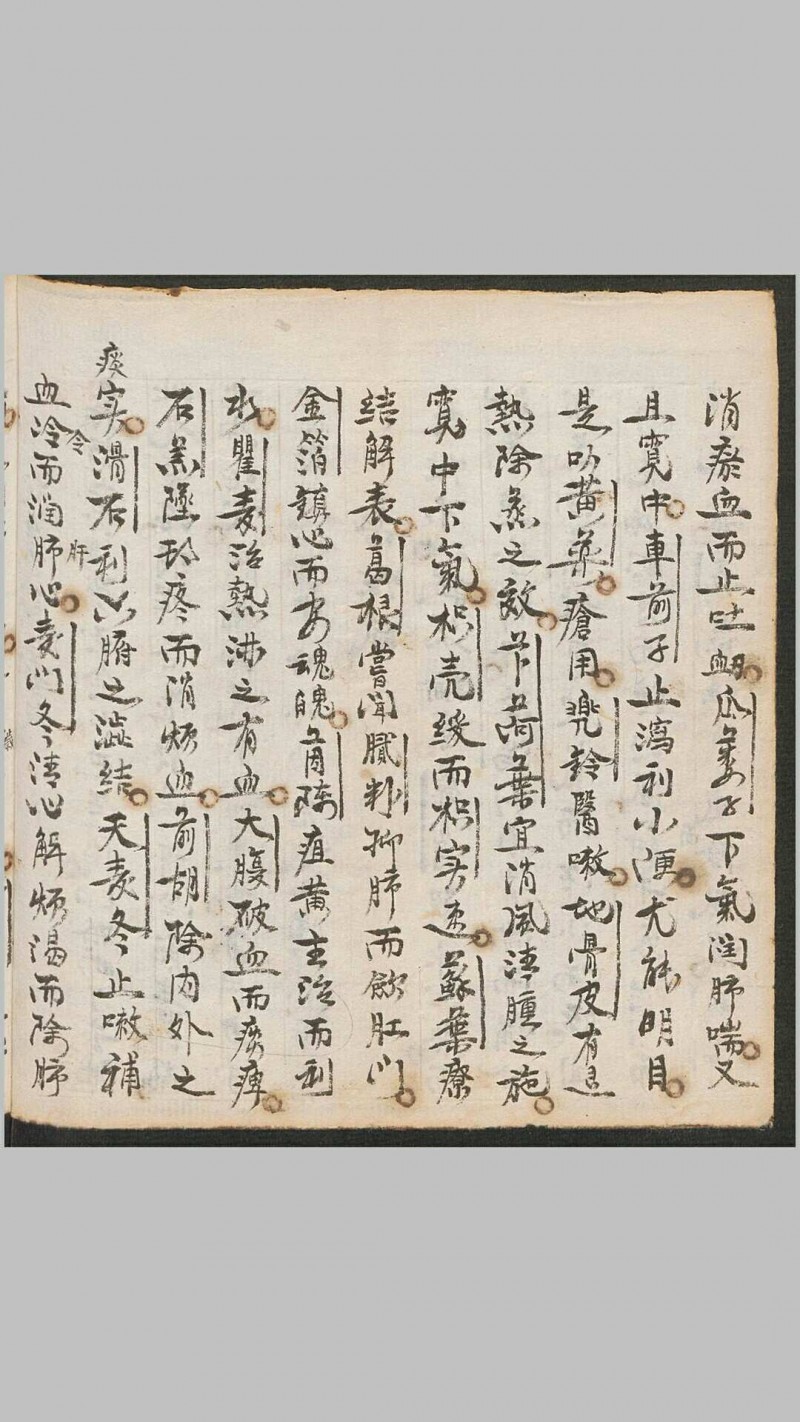 消瘀血而止吐衂瓜蔞子下氣潤肺喘又
且寬中車前子止瀉利小便尤能明目
是叻黃蘗瘡用兜鈴醫嗽地骨皮有退
熱除蒸之效荷葉宜消風清腫之施
寬中下氣枳壳緩而枳实速蘇葉療
結解表葛根嘗聞膩粉抑肺而斂肛门
金箔鎮心而安魂魄茵陳疽黃主治而利
水瞿麦治熱淋之有血大腹破血而痰痺
石羔墜疼而消煩血前胡除内外之
痰实滑石利六腑之澁结天麦冬止嗽補
血冷而润肺心麦门冬清心解煩渴而除肺
令
肝